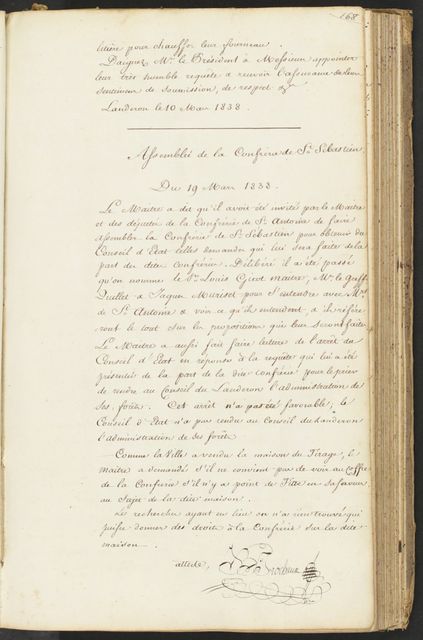 168
litière pour chauffer leur fourneau.
Daignez Mr. le Président & Messieurs appointer
leur très humble requête & recevoir l'assurance de leur
sentimens de soumission, de respect &
Landeron le 10 Mars 1838.
Assemblée de la Confrérie de St. Sébastien
Du 19 Mars 1838.
Le Maitre a dit qu'il avoit été invité par le Maitre
et des députés de la Confrérie de St. Antoine de faire
assembler la Confrérie de St. Sébastien pour obtenir du
Conseil d'Etat telles demandes qui lui sera faite de la
part des dites Confréries. Délibéré il a été passé
qu'on nomme le Sr. Louis Girod maitre, Mr. le Greffr.
Quellet & Jaques Muriset pour s'entendre avec Mrs.
de St. Antoine & voir ce qu'ils entendent, & ils référe-
ront le tout sur les propositions que leur seront faite
Le Maitre a aussi fait faire lecture de l'arrêt du
Conseil d'Etat en réponse à la requête qui lui a été
présentée de la part de la dite confrérie pour le prier
de rendre au Conseil du Landeron l'administration de
ses forêts. Cet arrêt n'a pas été favorable, le
Conseil d'Etat n'a pas rendu au Conseil du Landeron
l'administration de ses forêts
Comme la Ville a vendu la maison du Tirage, le
maitre a demandé s'il ne convient pas de voir au Coffre
de la Confrérie s'il n'y a point de Titre en sa faveur
au sujet de la dite maison.
Les recherches ayant eu lieu on n'a rien trouvé qui
puisse donner des droits à la Confrérie sur la dite
maison.
atteste,
Frochaux